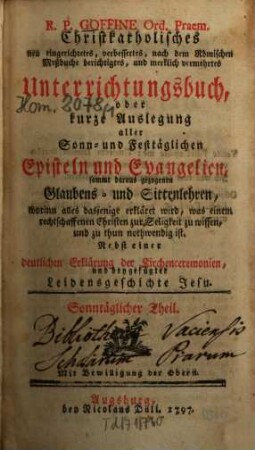 R. P. GOFFINE Ord. Praem.
Christkatholisches
neu eingerichtetes, verbessertes, nach dem Römischen
Meßbuche berichtigtes, und merklich vermehrtes
Unterrichtungsbuch,
Hom. 2078
oder
kurze Auslegung
aller
Sonn- und Festtäglichen
Episteln und Evangelien,
sammt daraus gezogenen
Glaubens- und Sittenlehren,
worinn alles dasjenige erkläret wird, was einem
rechtschaffenen Christen zur Seligkeit zu wissen,
und zu thun nothwendig ist.
Nebst einer
deutlichen Erklärung der Kirchenceremonien,
und beygefügter
Leidensgeschichte Jesu.
Sonntäglicher Theil.
Biblioth Vaciensis
Scholarum Piarum
Mit Bewilligung der Obern.
Augsburg,
bey Nicolaus Döll. 1797.